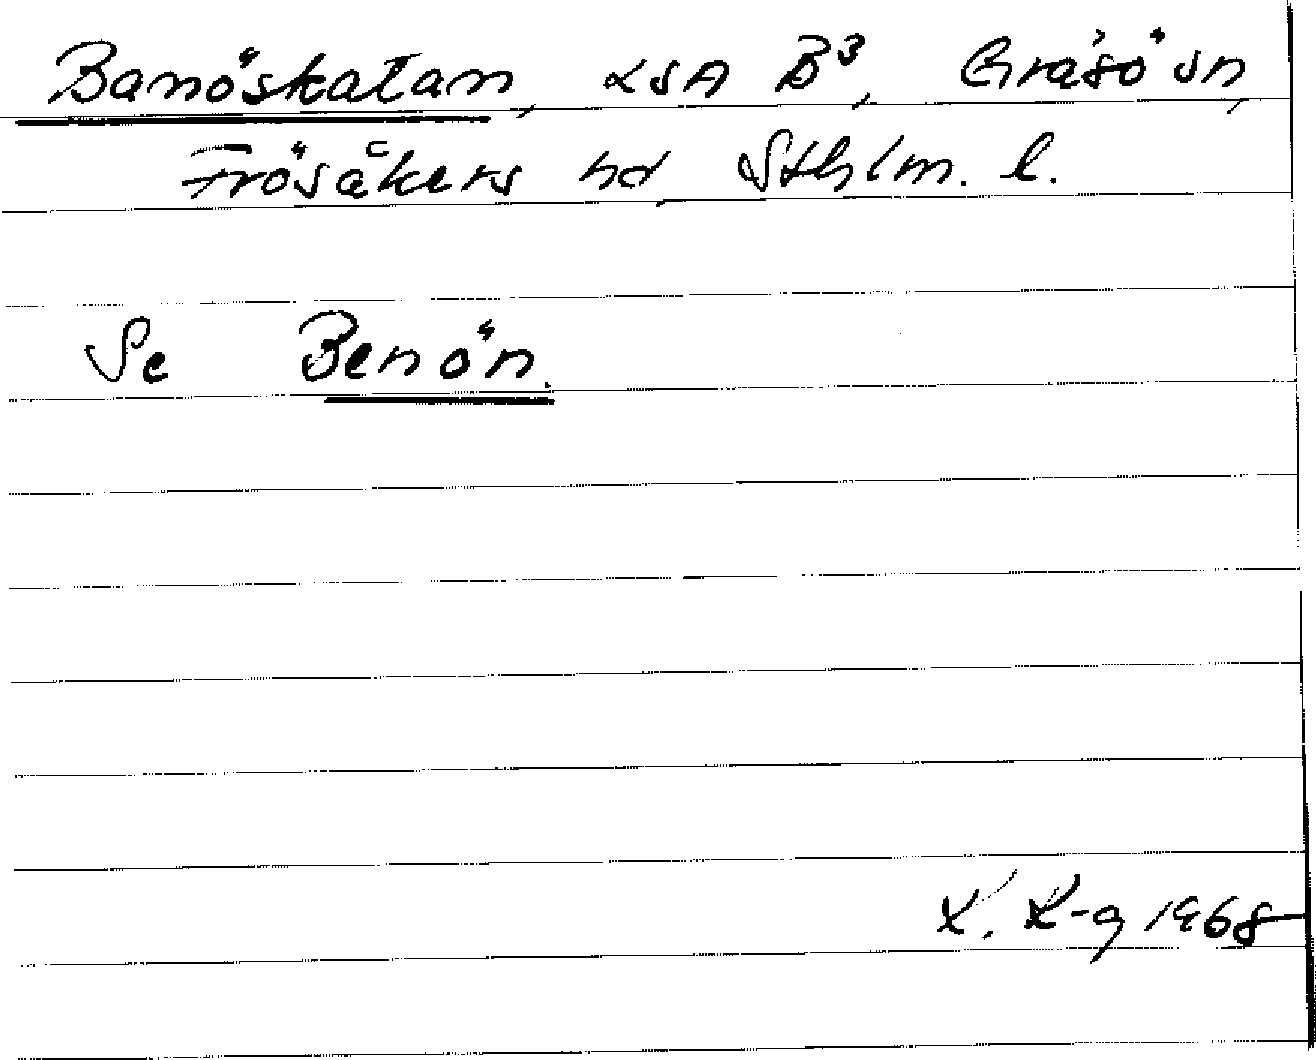 Banöskatan, LSA B³, Gräsö sn,
Frösåkers hd Sthlm. l.
Se Benön.
K. K-g 1968